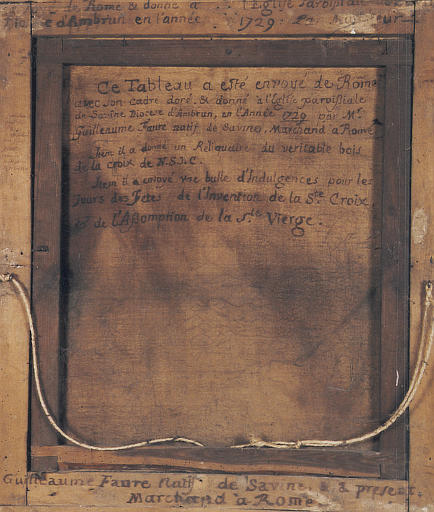 de Rome & donné a l'Eglise Paroissiale
d'Ambrun en l'année 1729. Par
Ce Tableau a esté envoyé de Rome
avec son cadre doré, & donné a l'Eglise paroissiale
de Savine Diocese d'Ambrun, en l'Année 1729 par Mr.
Guilleaume Faure natif de Savine, Marchand a Rome
Item il a donné un Reliquaire du veritable bois
de la croix de N.S.J.C.
Item il a envoyé une bulle d'Indulgences pour les
Jours des Fetes de l'Invention de la Ste Croix
& de l'Assomption de la Ste Vierge.
Guilleaume Faure Natif de Savine, & a present
Marchand a Rome